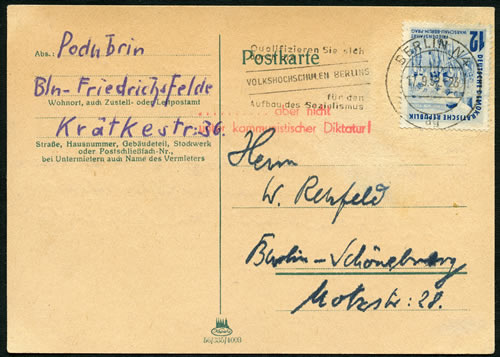 Abs.: Podubrin
Bln-Friedrichsfelde
Wohnort, auch Zustell- oder Leitpostamt
Krätkestr: 36
Straße, Hausnummer, Gebäudeteil, Stockwerk
oder Postschließfach-Nr.,
bei Untermietern auch Name des Vermieters
Postkarte
Qualifizieren Sie sich
VOLKSHOCHSCHULEN BERLINS
für den
Aufbau des Sozialismus
aber nicht
unter kommunistischer Diktatur!
BERLIN
12
WARSCHAU-BERLIN-PRAG
DEUTSCHE DEMOKRATISCHE REPUBLIK
Herrn
W. Rehfeld
Berlin-Schöneberg
Motzstr: 28.